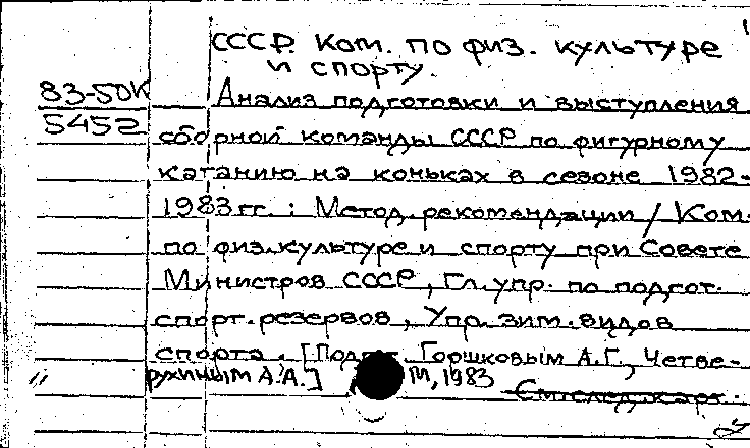 СССР. Ком. по физ. культуре
и спорту.
83-50К
Анализ подготовки и выступления
5452
сборной команды СССР по фигурному
катанию на коньках в сезоне 1982-
1983 гг. : Метод. рекомендации / Ком.
по физ.культуре и спорту при Совете
Министров СССР, Гл. упр. по подгот.
спорт. резервов, Упр. зим. видов
спорта. [Подгот. Горшковым А.Г., Четве-
рухиным А.А.] М, 1983
См. след. карт.